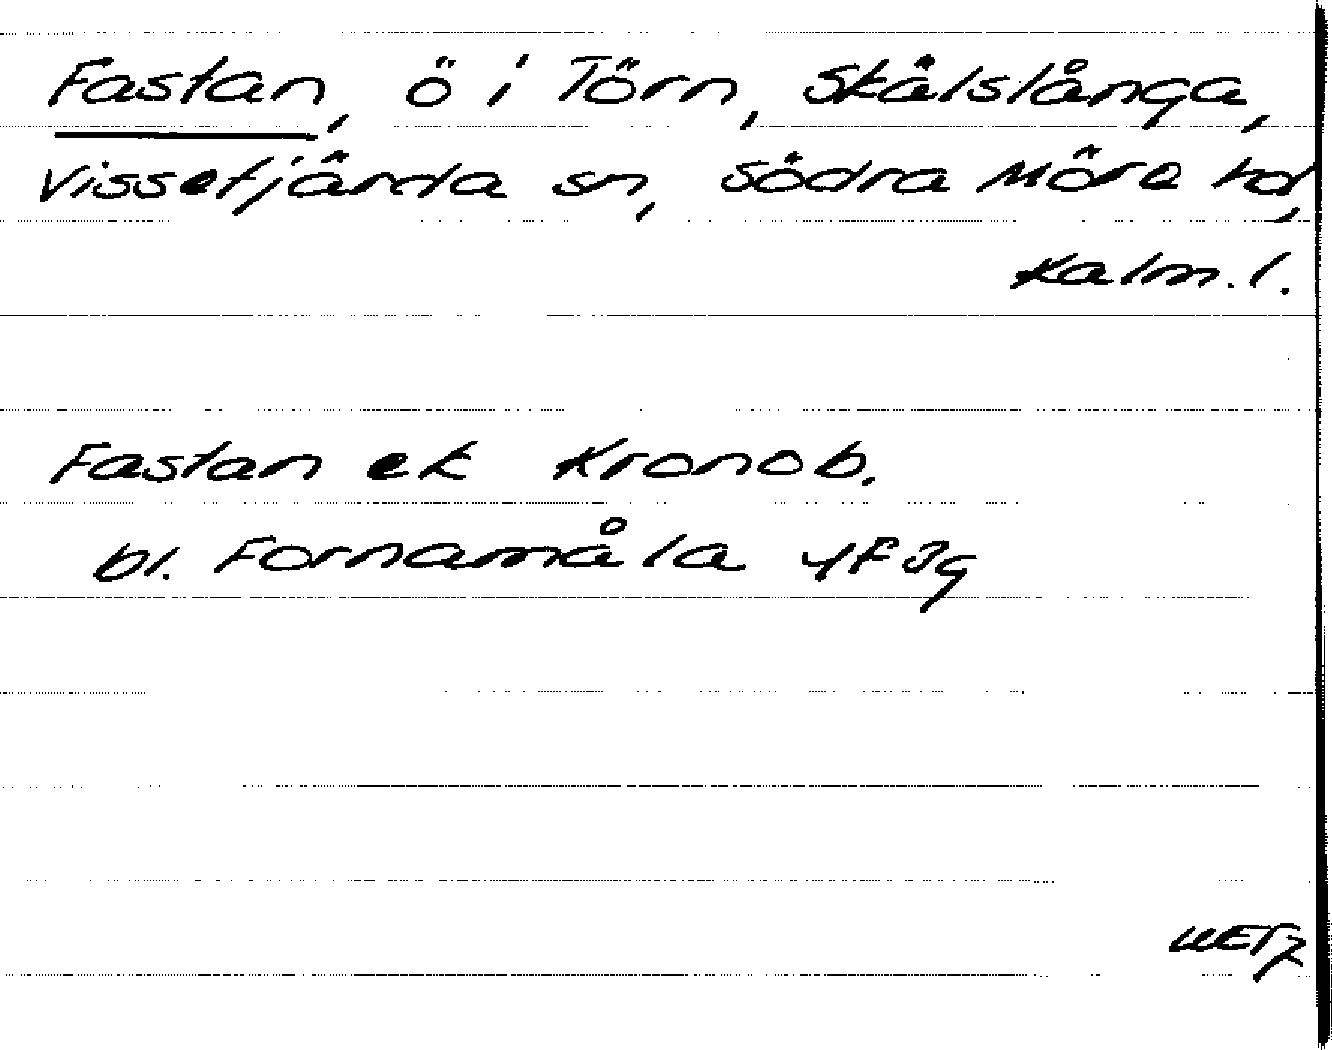 Fastan, ö i Törn, Skälslånga,
Vissefjärda sn, Södra Möre hd,
Kalm. l.
Fastan ek Kronob.
bl. Fornamåla 4F3g